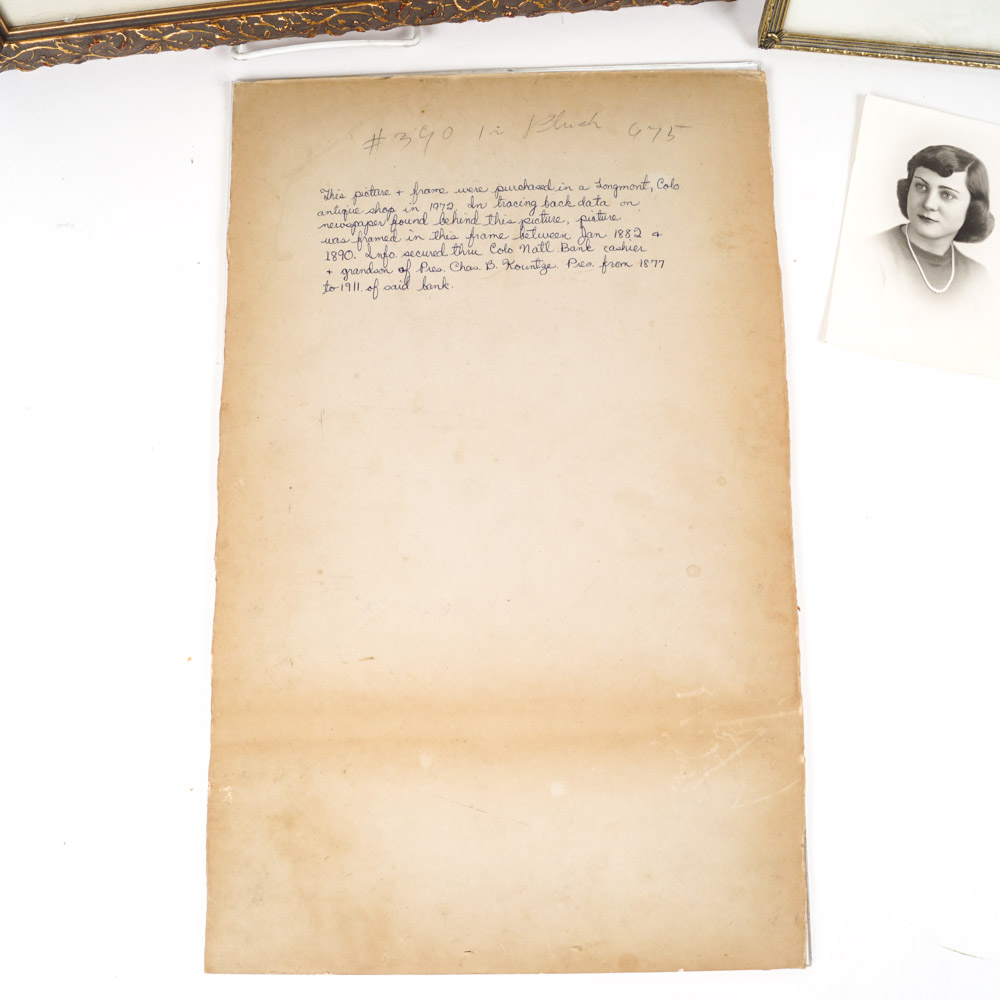 #390 1 in Plush 675
This picture + frame were purchased in a Longmont, Colo
antique shop in 1972. In tracing back data on
newspaper found behind this picture, picture
was framed in this frame between Jan 1882 +
1890. Info. secured thru Colo Nat'l Bank cashier
+ grandson of Pres. Chas. B. Kountze. Pres. from 1877
to 1911 of said bank.